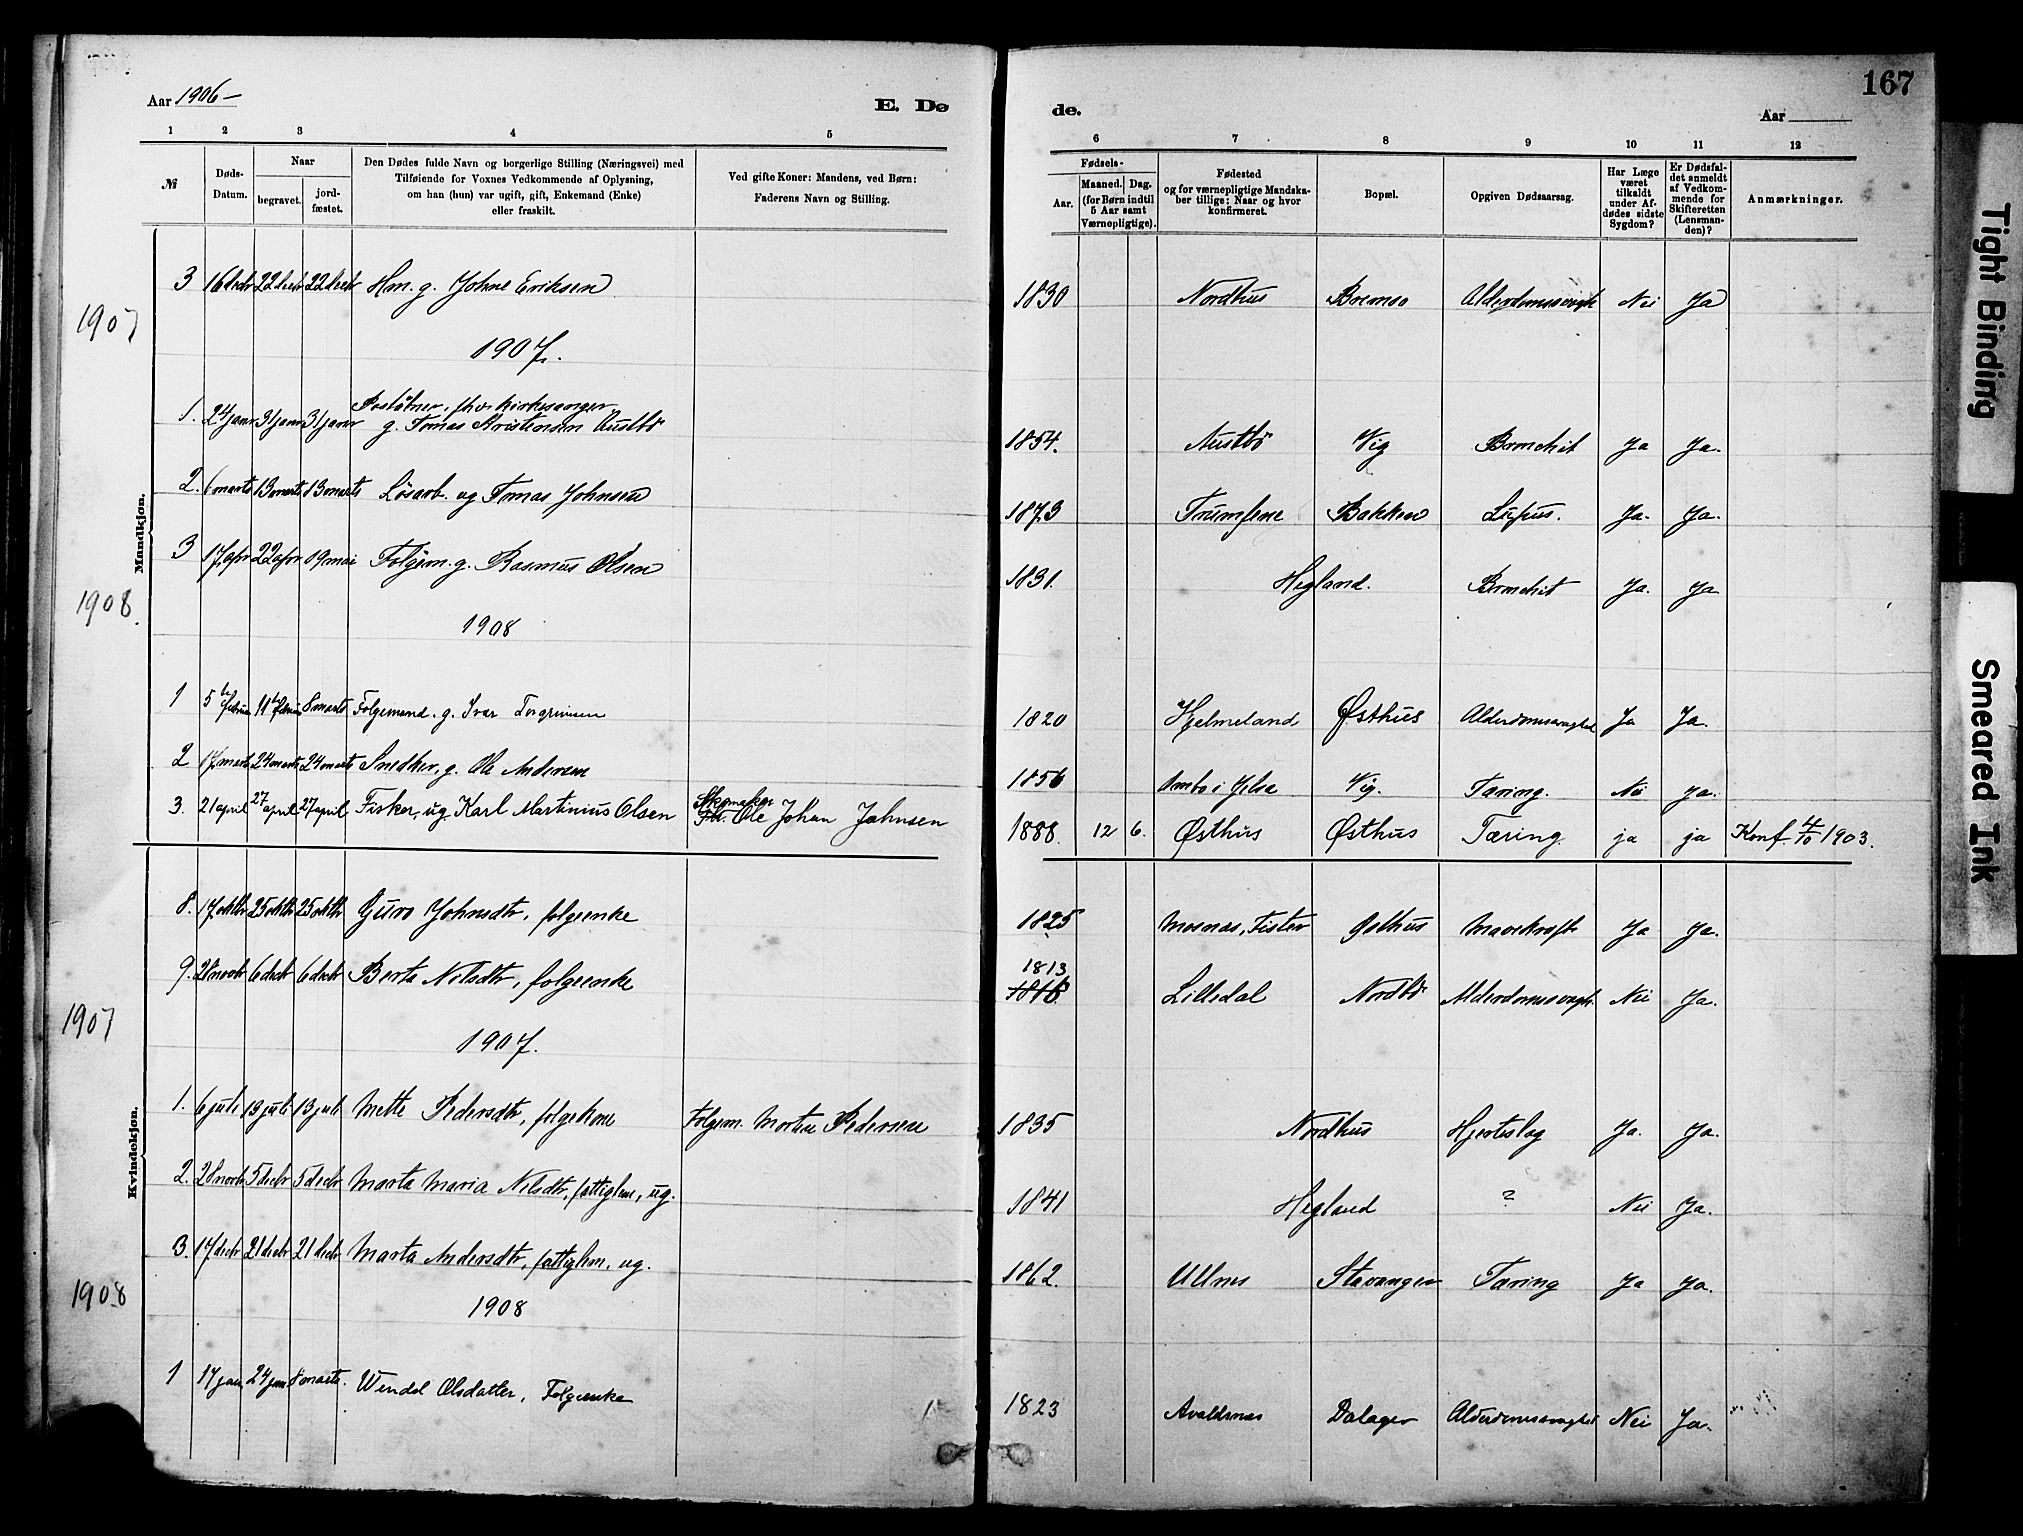 167
Aar 1906-
E. Dø
de.
Aar
1 2 3 4 5 6 7 8 9 10 11 12
№
Døds-Datum.
Naar
begravet.
jord-fæstet.
Den Dødes fulde Navn og borgerlige Stilling (Næringsvei) med
Tilføiende for Voxnes Vedkommende af Oplysning,
om han (hun) var ugift, gift, Enkemand (Enke)
eller fraskilt.
Ved gifte Koner: Mandens, ved Børn:
Faderens Navn og Stilling.
Fødsels-
Aar.
Maaned. Dag.
(for Børn indtil
5 Aar samt
Værnepligtige).
Fødested
og for værnepligtige Mandska-
ber tillige: Naar og hvor
konfirmeret.
Bopæl.
Opgiven Dødsaarsag.
Har Læge
været
tilkaldt
under Af-
dødes sidste
Sygdom?
Er Dødsfal-
det anmeldt
af Vedkom-
mende for
Skifteretten
(Lensman-
den)?
Anmærkninger.
Mandkjøn.
3 16 decbr 22 decbr 22 decbr Hm. g. Johne Eriksen 1830 Nordhus Alderdomssvagh Nei Ja
1907
1907.
1. 24 janr 31 janr 31 janr Poståbner, fhv. kirkesanger
g. Tomas Kristensen Austbø 1854. Austbø Vig Bronchit Ja Ja.
2. 6 marts 13 marts 13 marts Løsarb. ug Tomas Johnsen 1873 Bakken Lupus. Ja. Ja.
3 17 apr 22 apr 19 mai Følgem. g. Rasmus Olsen 1831. Hegland. Bronchit Ja. Ja
1908.
1908
1 5te februar 11te februar 8 marts Følgemand. g. Ivar Torgrimsen 1820 Hjelmeland Østhus Alderdomssvaghed Ja Ja.
2 17 marts 24 marts 24 marts Snedker, g. Ole Andersen 1856 Ombo i Jelsa Vig. Tæring. Nei Ja.
3. 21 april 27 april 27 april Fisker, ug Karl Martinius Olsen Skomaker Ole Johan Johnsen 1888. 12 6. Østhus Østhus Tæring ja ja Konf. 4/10 1903.
Kvindekjøn.
8. 17 oktbr 25 oktbr 25 oktbr Guro Johnsdtr, følgeenke 1825 Mosnes, Fister Østhus Mavekræft Ja Ja.
9. 28 novbr 6 decbr 6 decbr Berta Nilsdtr, følgeenke 1813 1816 Lilledal Nordbø Alderdomssvagh. Nei Ja.
1907
1907.
1. 6 juli 13 juli 13 juli Mette Pedersdtr, følgekone Følgem. Morten Pedersen 1835 Nordhus Hjerteslag Ja. Ja.
2. 28 novbr 5 decbr 5 decbr Marta Maria Nilsdtr, fattiglem, ug. 1841 Hegland ? Nei Ja.
3. 17 decbr 21 decbr 21 decbr Marta Andersdtr, fattiglem, ug. 1862. Ullnes Stavanger Tæring Ja Ja.
1908
1908
1 17 jan. 24 jan 8 marts. Wendel Olsdatter, Følgeenke 1823 Avaldsnes Dalager Alderdomssvaghed Nei Ja.
Tight Binding
Smeared Ink